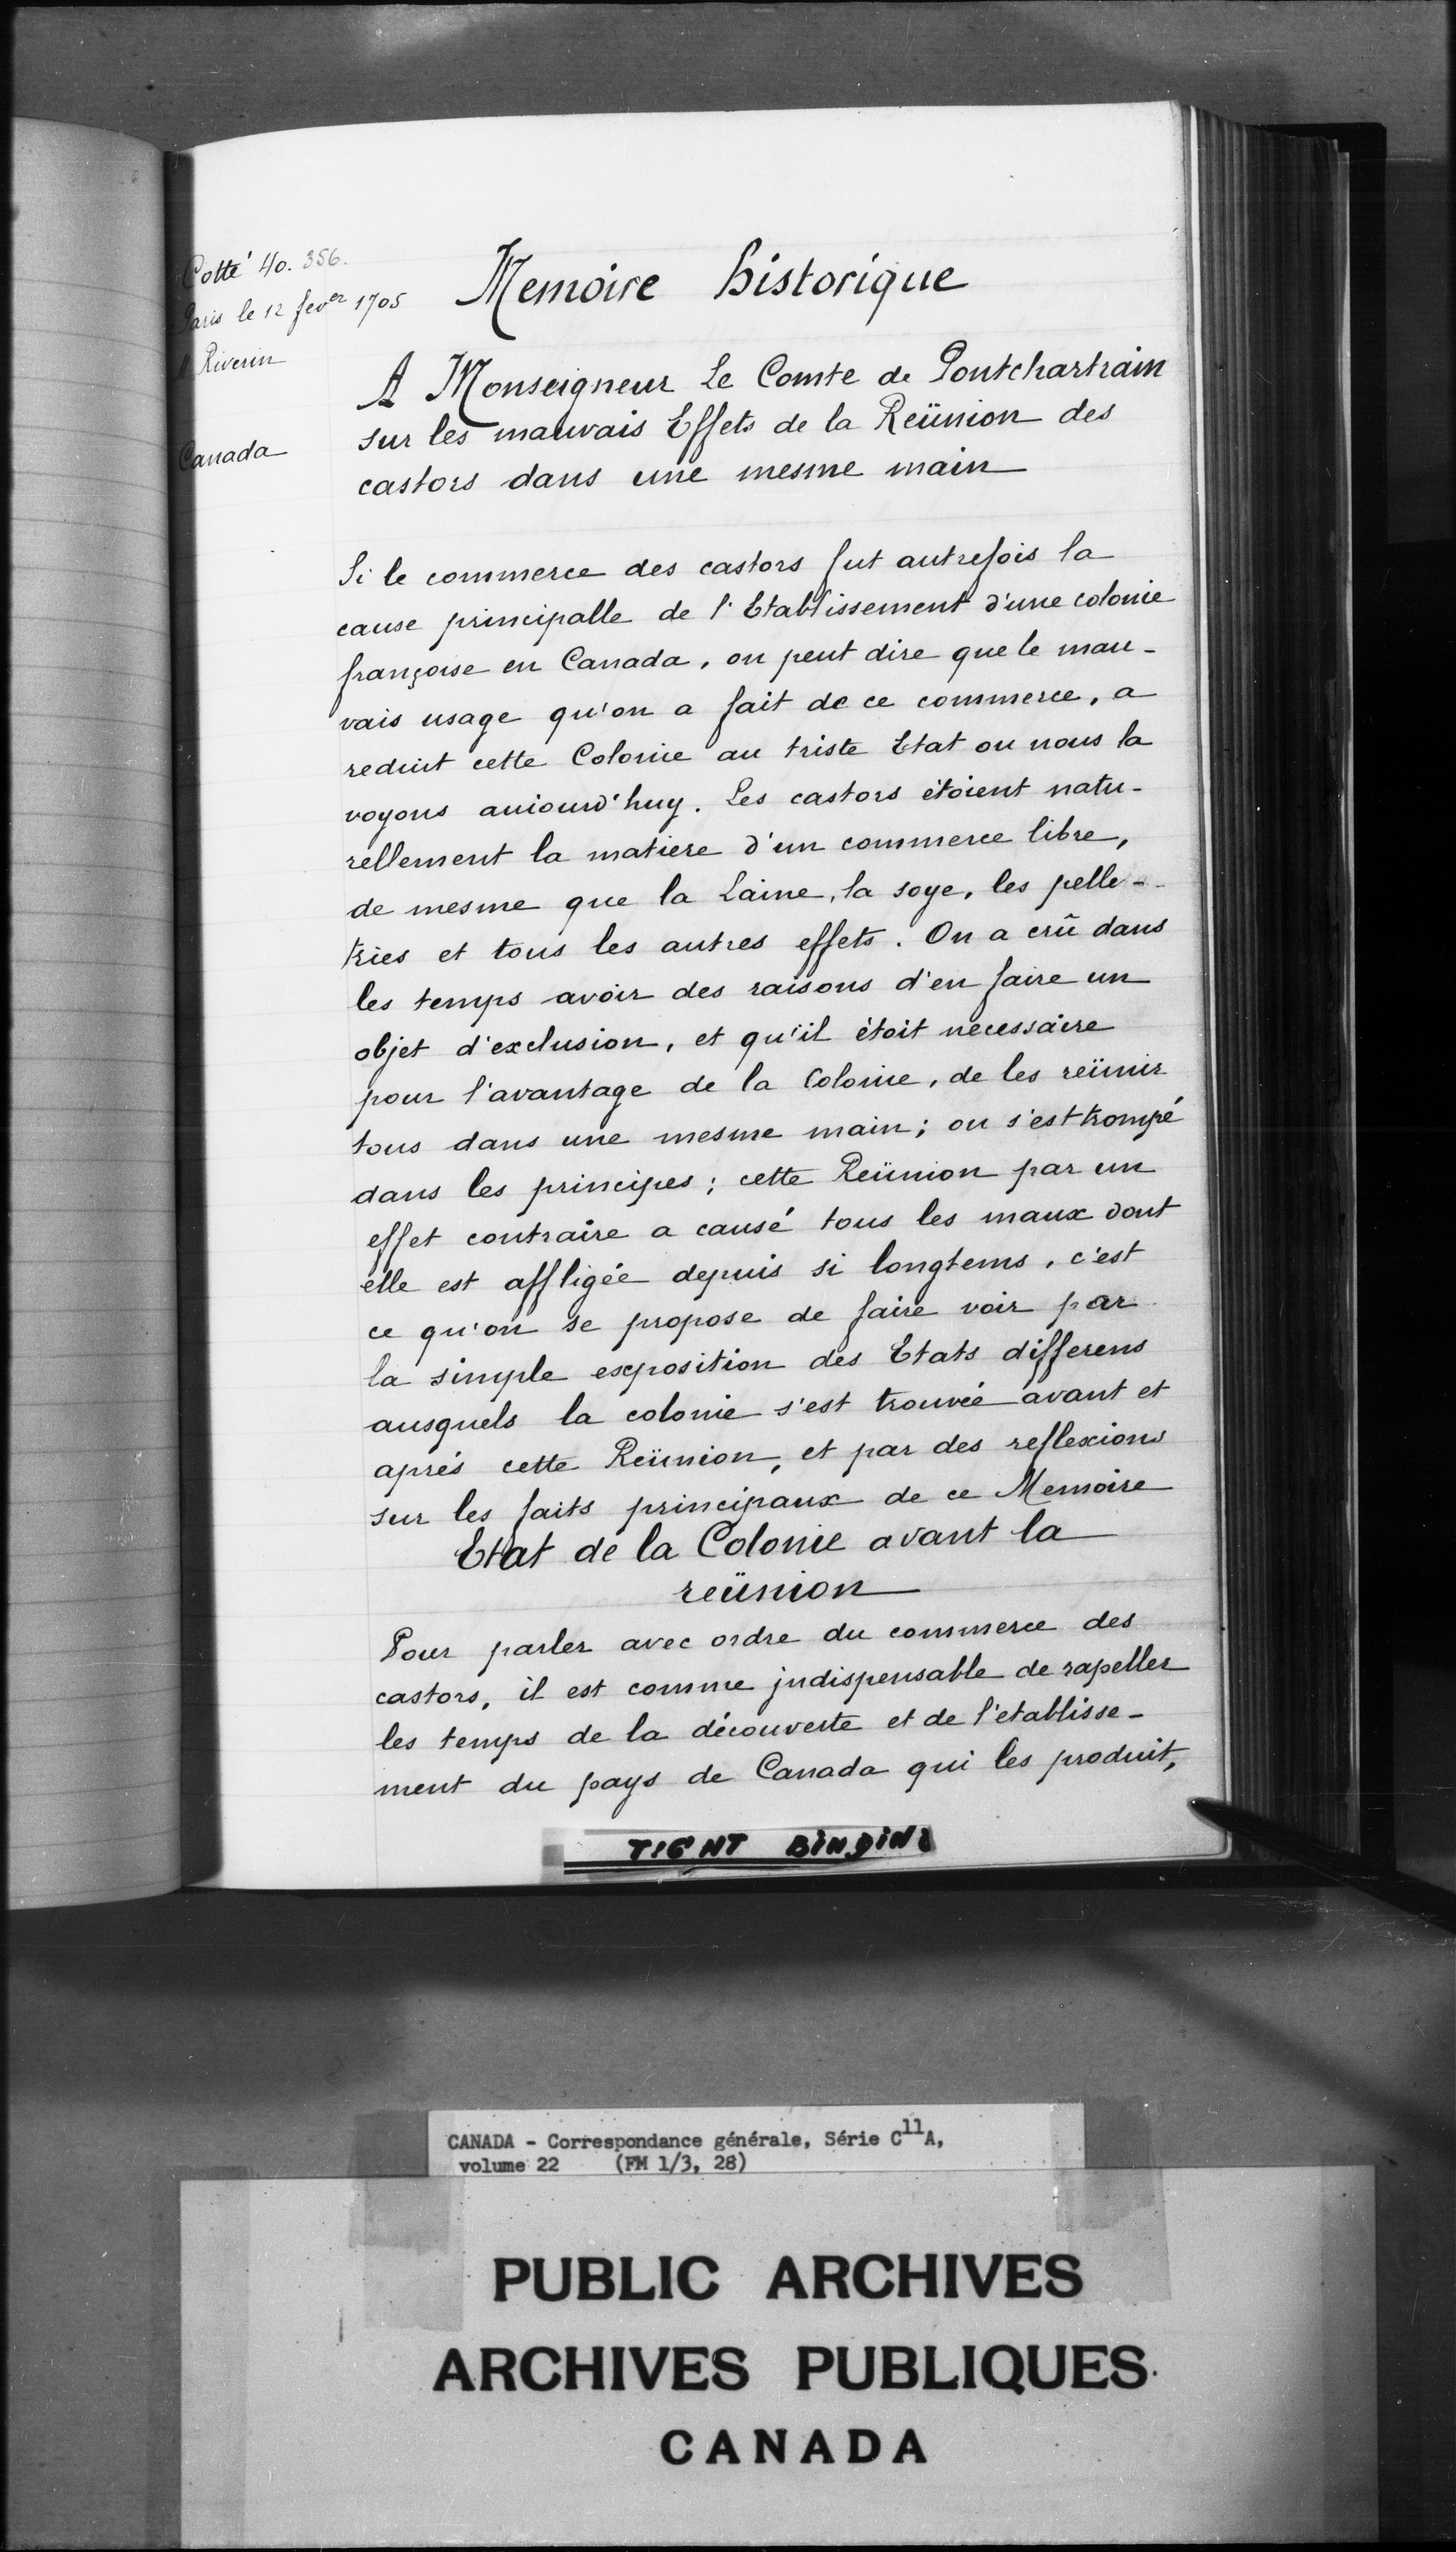 Cotté 40. 356.
Paris le 12 fever 1705
M Riverin
Canada
Memoire historique
A Monseigneur Le Comte de Pontchartrain
sur les mauvais Effets de la Reünion des
castors dans une mesme main
Si le commerce des castors fut autrefois la
cause principalle de l'Etablissement d'une colonie
françoise en Canada, on peut dire que le mau-
vais usage qu'on a fait de ce commerce, a
reduit cette Colonie au triste Etat ou nous la
voyons auiourd'huy. Les castors étoient natu-
rellement la matiere d'un commerce libre,
de mesme que la Laine, la soye, les pelle-
tries et tous les autres effets. On a crû dans
les temps avoir des raisons d'en faire un
objet d'exclusion, et qu'il étoit necessaire
pour l'avantage de la Colonie, de les reünir
tous dans une mesme main; on s'est trompé
dans les principes; cette Reünion par un
effet contraire a causé tous les maux dont
elle est affligée depuis si longtems, c'est
ce qu'on se propose de faire voir par
la simple exposition des Etats differens
ausquels la colonie s'est trouvée avant et
aprés cette Reünion, et par des reflexions
sur les faits principaux de ce Memoire
Etat de la Colonie avant la
reünion
Pour parler avec ordre du commerce des
castors, il est comme jndispensable de rapeller
les temps de la découverte et de l'etablisse-
ment du pays de Canada qui les produit,
TIGHT BINDING
CANADA - Correspondance générale, Série C11A,
volume 22 (FM 1/3, 28)
PUBLIC ARCHIVES
ARCHIVES PUBLIQUES
CANADA